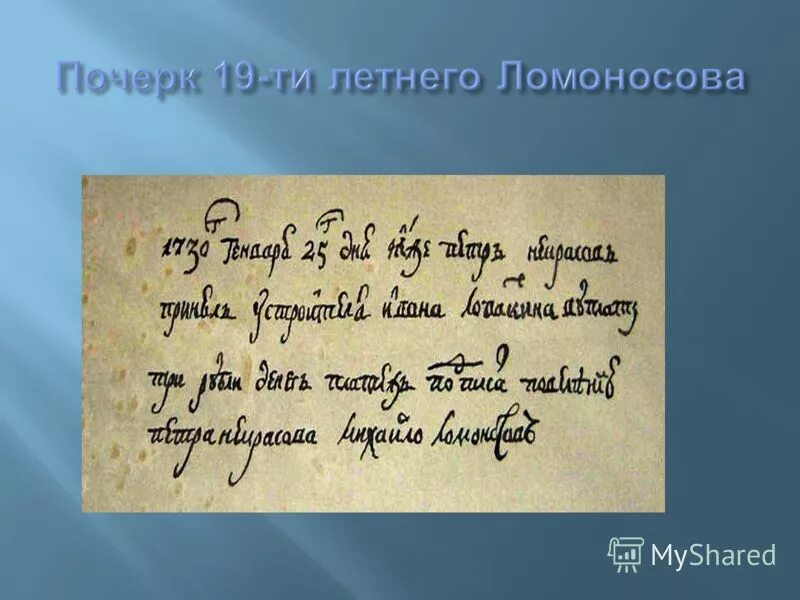 Почерк 19-ти летнего Ломоносова
1730 Генваря 25 дня петръ некрасов
принелъ у строителя ивана лопаткина
три рубли денегъ подписа повеленію
петра некрасова михайло ломоносовъ
MyShared